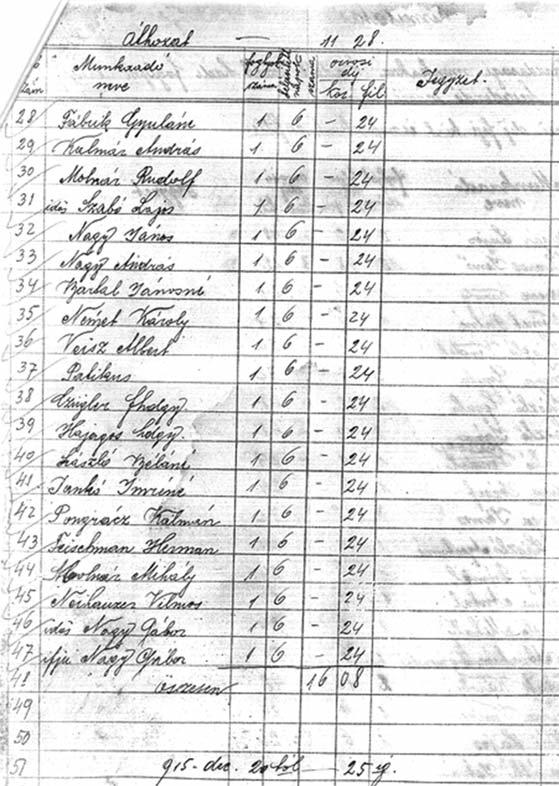 Áthozat — 11 28.
szám Munkaadó neve foglyok száma száma orvosi díj kor fil Jegyzet.
28 Fábrik Gyuláné 1 6 - 24
29 Kalmár András 1 6 - 24
30 Molnár Rudolf 1 6 - 24
31 idős Szabó Lajos 1 6 - 24
32 Nagy János 1 6 - 24
33 Nagy András 1 6 - 24
34 Bartal Jánosné 1 6 - 24
35 Német Károly 1 6 - 24
36 Veisz Albert 1 6 - 24
37 Patikus 1 6 - 24
38 Cziglér 1 6 - 24
39 Hajagos 1 6 - 24
40 László Béláné 1 6 - 24
41 Jankó Imréné 1 6 - 24
42 Pongrácz Kálmán 1 6 - 24
43 Feischman Herman 1 6 - 24
44 Molnár Mihály 1 6 - 24
45 Neihauzer Vilmos 1 6 - 24
46 idős Nagy Gábor 1 6 - 24
47 ifjú Nagy Gábor 1 6 - 24
48 összesen 16 08
49
50
51 915 - dec. 20 tól — 25 ig.